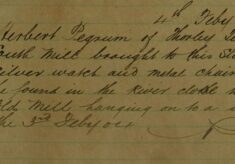 4th Feby
Herbert Pegrum of Thorley
South Mill brought to this St
silver watch and metal chain
he found in the River close
Old Mill, hanging on to a
the 3rd Feby 04